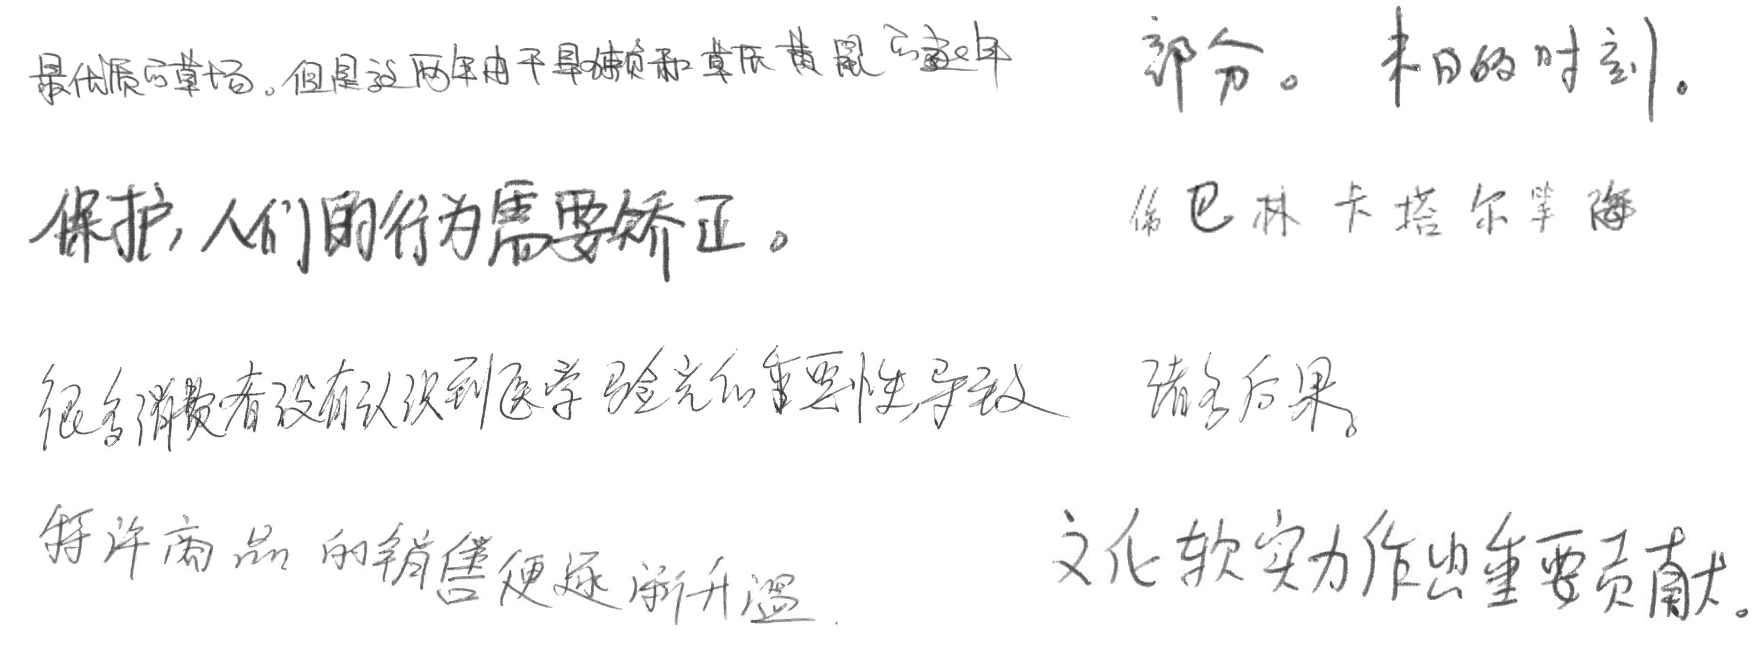 最优质的草场。但是这两年由于旱獭和草原黄鼠的逐年
部分。 末日的时刻.
保护,人们的行为需要矫正。
佈巴林卡塔尔半海
很多消费者没有认识到医学验光的重要性,导致
诸多后果。
特许商品的销售便逐渐升温.
文化软实力作出重要贡献。